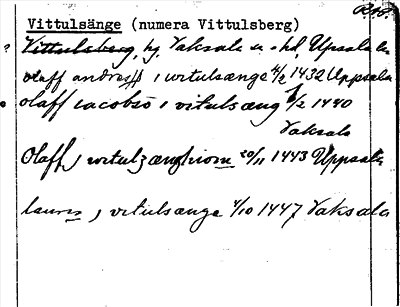 Vittulsänge (numera Vittulsberg)
Vittulsberg, hg, Vaksala sn o. hd, Upsala län
olaff andress i witulsænge 4/2 1432 Uppsala
olaff iacobsō i vitulsæng 1/2 1440
Vaksala
Olaff, witulzænghiom 20/11 1443 Uppsala
laurens, vitulsænge 4/10 1447 Vaksala